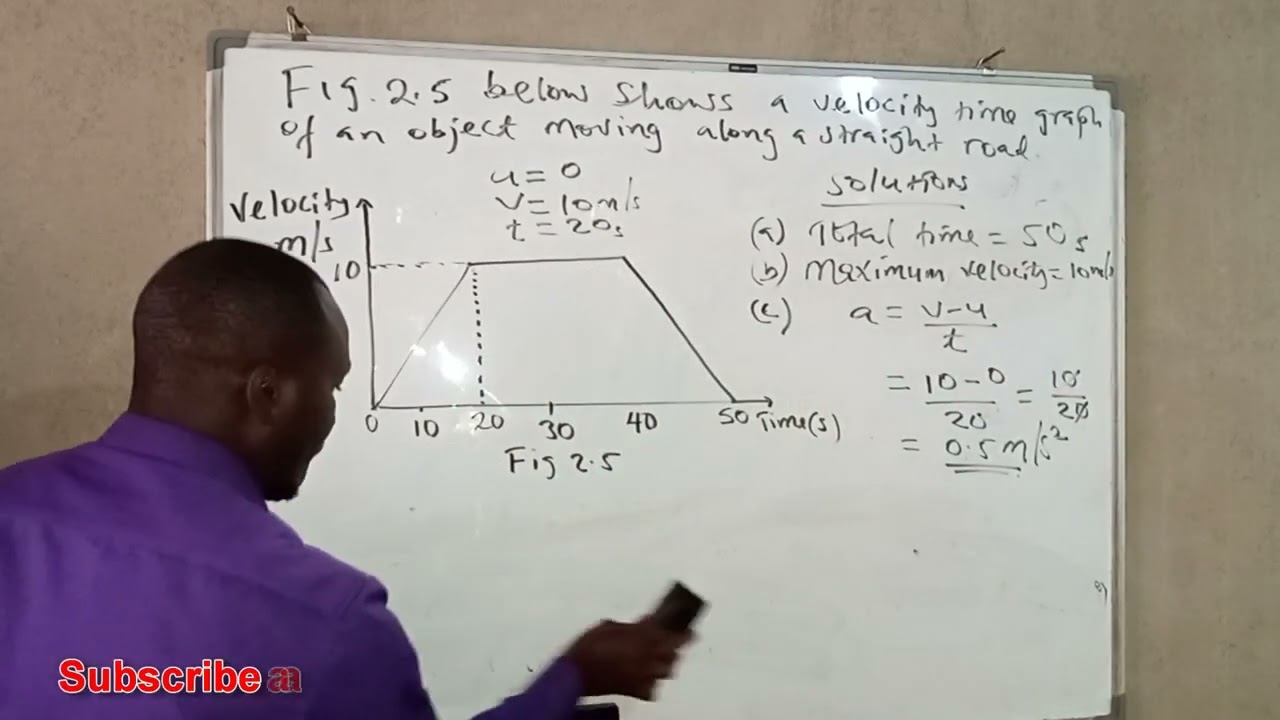 Fig. 2.5 below shows a velocity time graph
of an object moving along a straight road.
u = 0
v = 10m/s
t = 20s
Velocity
m/s
10
0 10 20 30 40 50 Time(s)
Fig 2.5
Solutions
(a) Total time = 50s
(b) Maximum velocity = 10m/s
(c) a = v-u
t
= 10-0 = 10
20 20
= 0.5m/s²
Subscribe